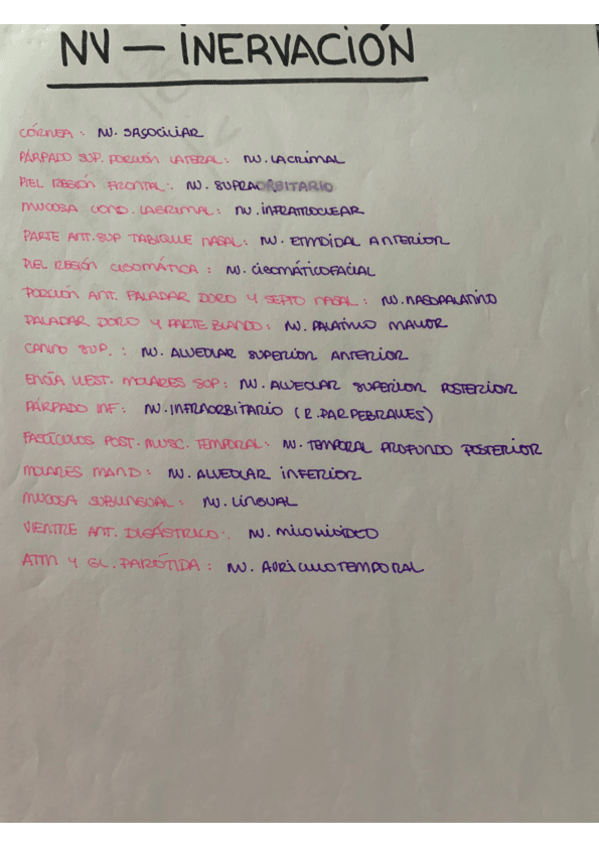 NV — INERVACIÓN
CÓRNEA: NV. SAGOCILIAR
PÁRPADO SUP. PORCIÓN LATERAL: NV. LACRIMAL
PIEL REGIÓN FRONTAL: NV. SUPRAORBITARIO
MUCOSA COND. LAGRIMAL: NV. INFRATROCLEAR
PARTE ANT. SUP TABIQUE NASAL: NV. ETMOIDAL ANTERIOR
PIEL REGIÓN CIGOMÁTICA: NV. CIGOMÁTICOFACIAL
PORCIÓN ANT. PALADAR DURO Y SEPTO NASAL: NV. NASOPALATINO
PALADAR DURO Y PARTE BLANDO: NV. PALATINO MAYOR
CANINO SUP.: NV. ALVEOLAR SUPERIOR ANTERIOR
ENCÍA VEST. MOLARES SUP: NV. ALVEOLAR SUPERIOR POSTERIOR
PÁRPADO INF: NV. INFRAORBITARIO (R. PARPEBRALES)
FASCÍCULOS POST. MUSC. TEMPORAL: NV. TEMPORAL PROFUNDO POSTERIOR
MOLARES MAND: NV. ALVEOLAR INFERIOR
MUCOSA SUBLINGUAL: NV. LINGUAL
VIENTRE ANT. DIGÁSTRICO: NV. MILOHIOIDEO
ATM Y GL. PARÓTIDA: NV. AURICULOTEMPORAL